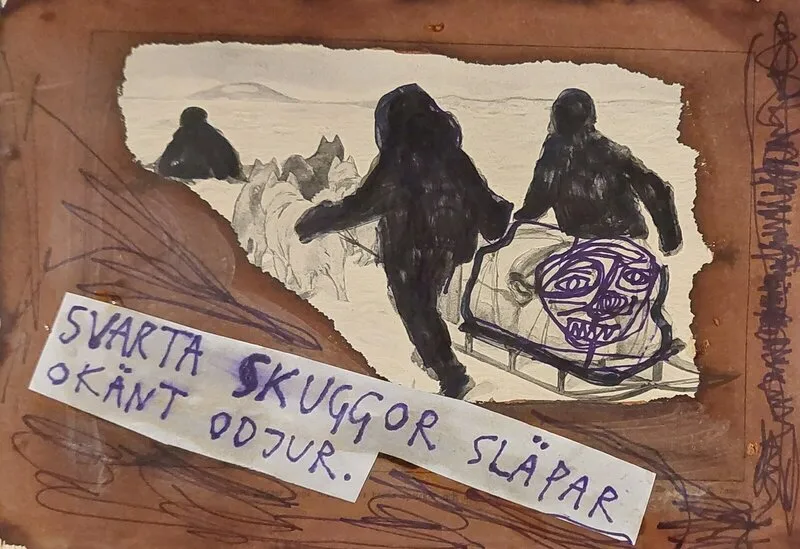 SVARTA SKUGGOR SLÄPAR
OKÄNT ODJUR.